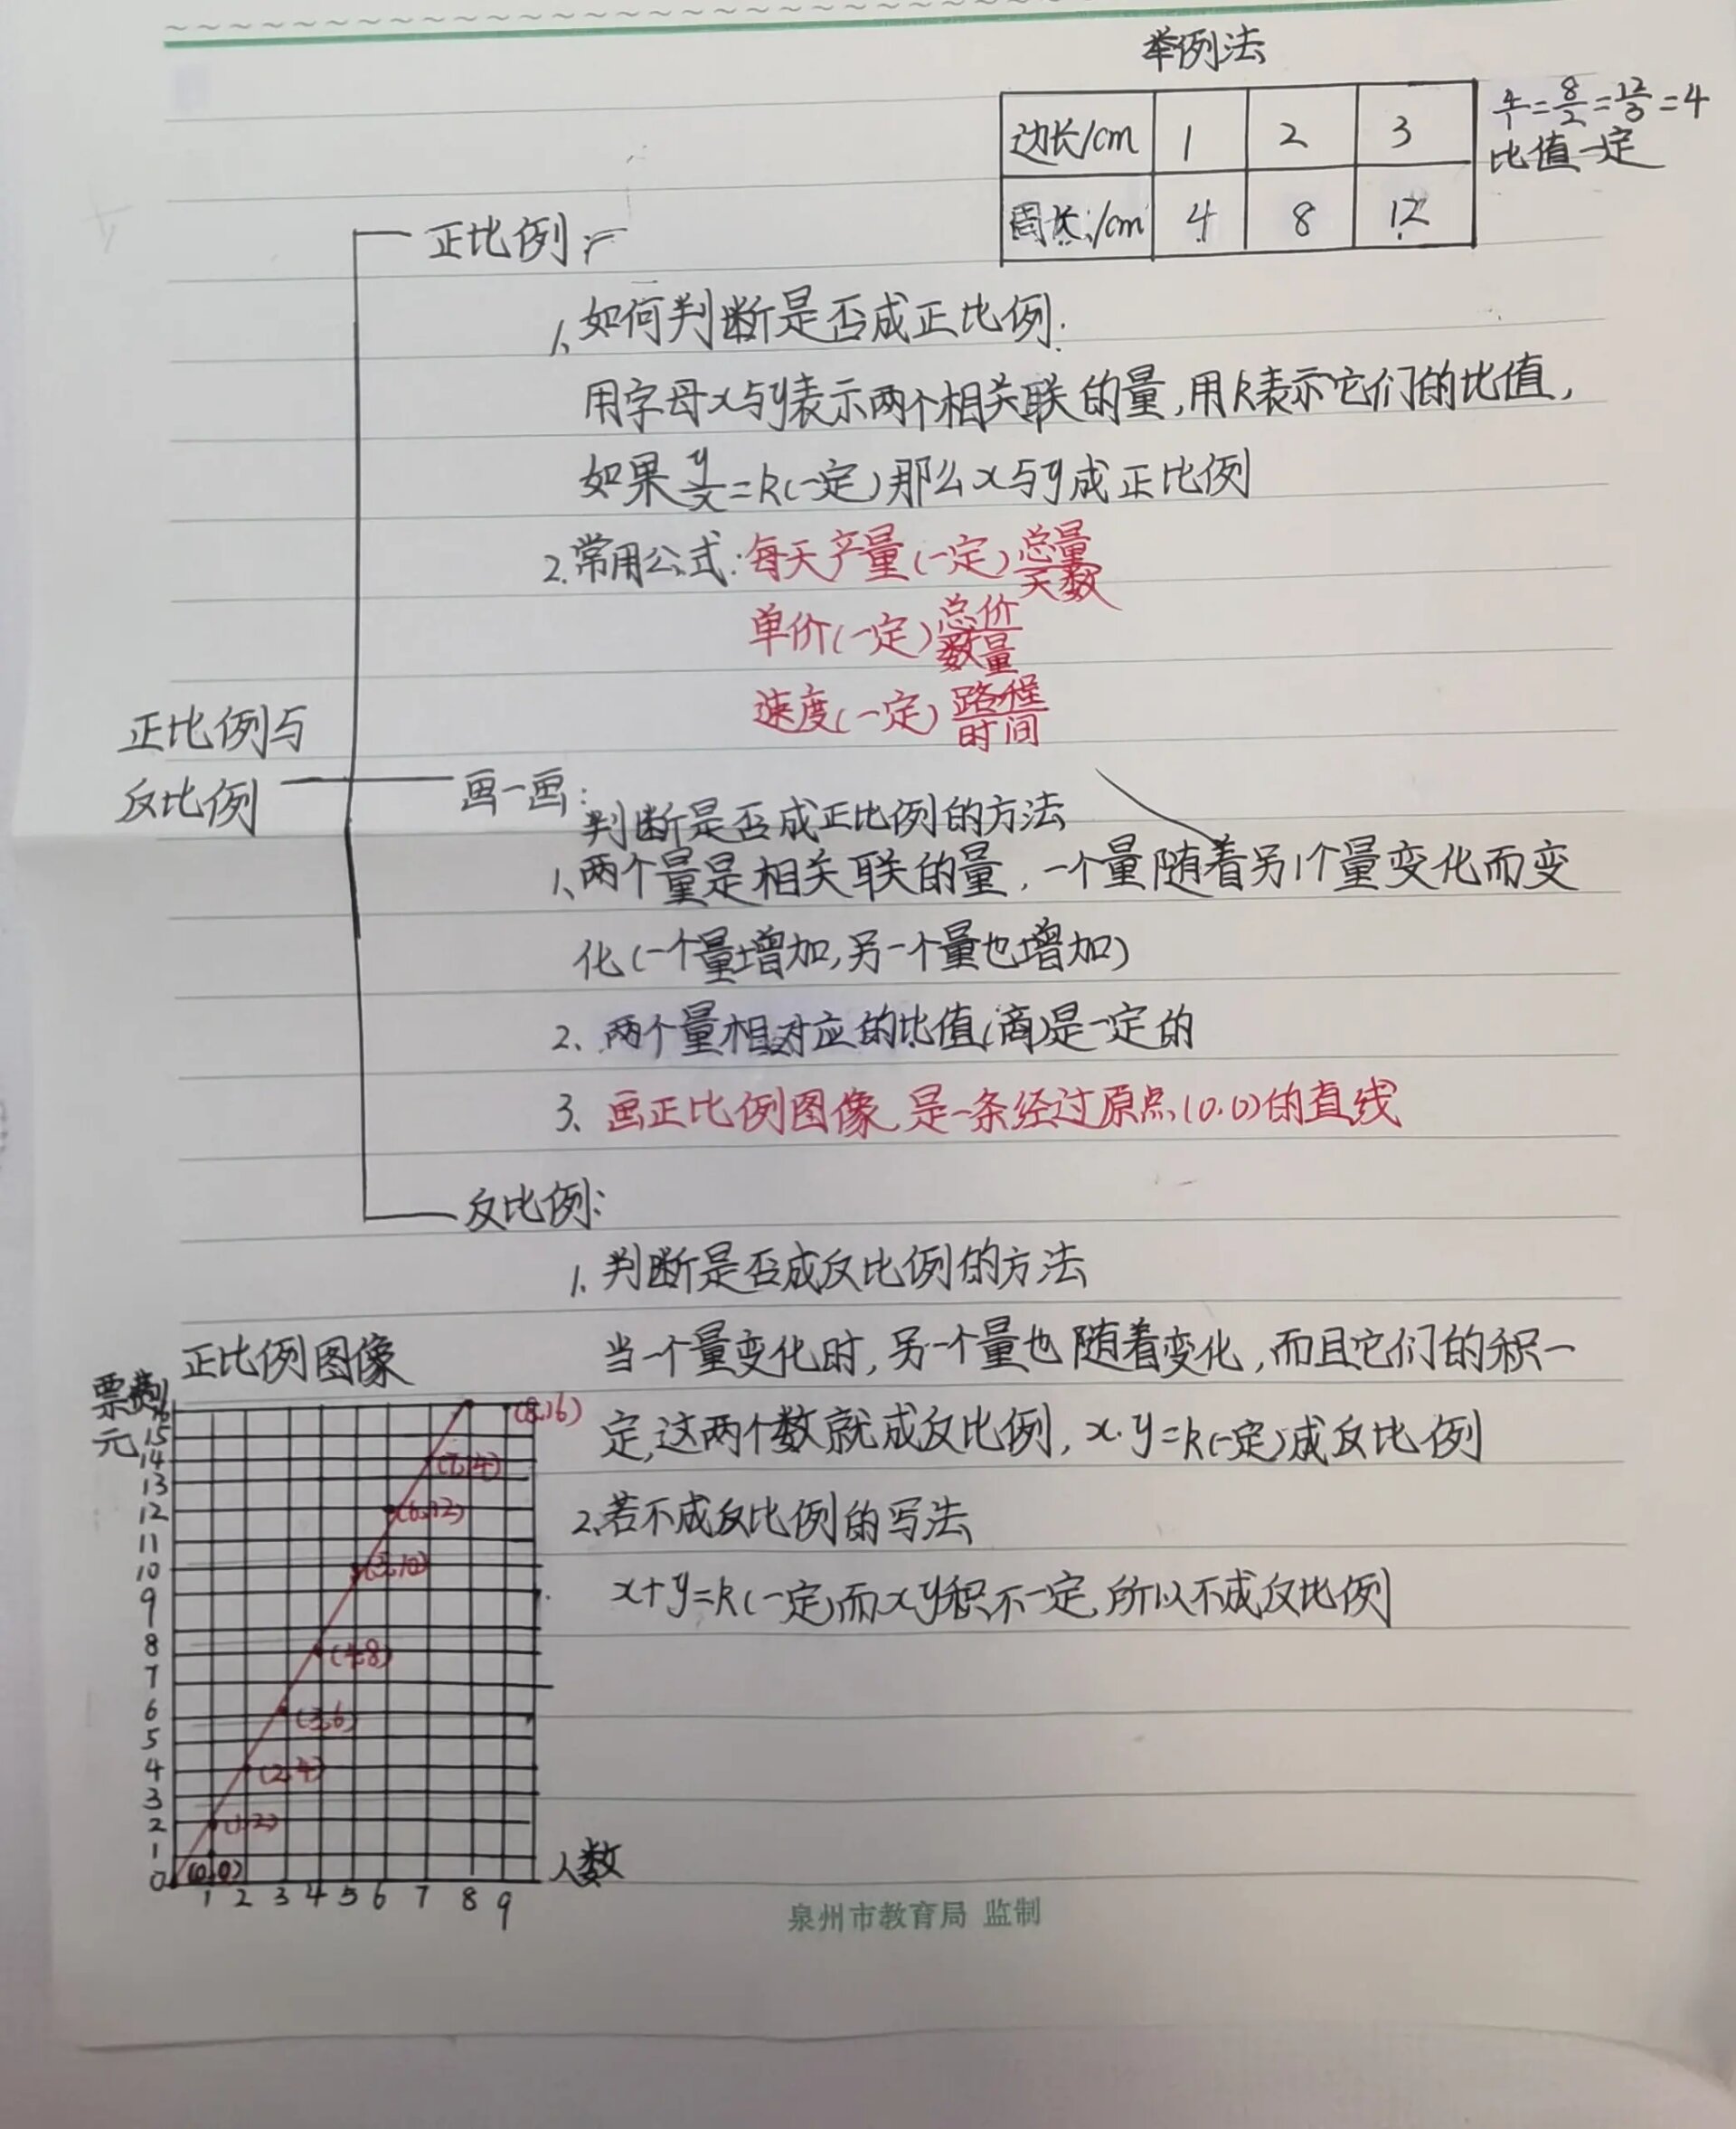 举例法
边长/cm 1 2 3
周长/cm 4 8 12
4/1=8/2=12/3=4
比值一定
正比例与
反比例
正比例:
1、如何判断是否成正比例.
用字母x与y表示两个相关联的量,用k表示它们的比值,
如果y/x=k(一定)那么x与y成正比例
2.常用公式:每天产量(一定)总量/天数
单价(一定)总价/数量
速度(一定)路程/时间
画一画:
判断是否成正比例的方法
1、两个量是相关联的量,一个量随着另1个量变化而变
化(一个量增加,另一个量也增加)
2、两个量相对应的比值(商)是一定的
3、画正比例图像,是一条经过原点(0.0)的直线
反比例:
1.判断是否成反比例的方法
当一个量变化时,另一个量也随着变化,而且它们的积一
定,这两个数就成反比例,x·y=k(一定)成反比例
2、若不成反比例的写法
x+y=k(一定)而xy积不一定,所以不成反比例
正比例图像
票费/
元
16
15
14
13
12
11
10
9
8
7
6
5
4
3
2
1
0
(8,16)
(7,14)
(6,12)
(5,10)
(4,8)
(3,6)
(2,4)
(1,2)
(0,0)
1 2 3 4 5 6 7 8 9
人数
泉州市教育局 监制